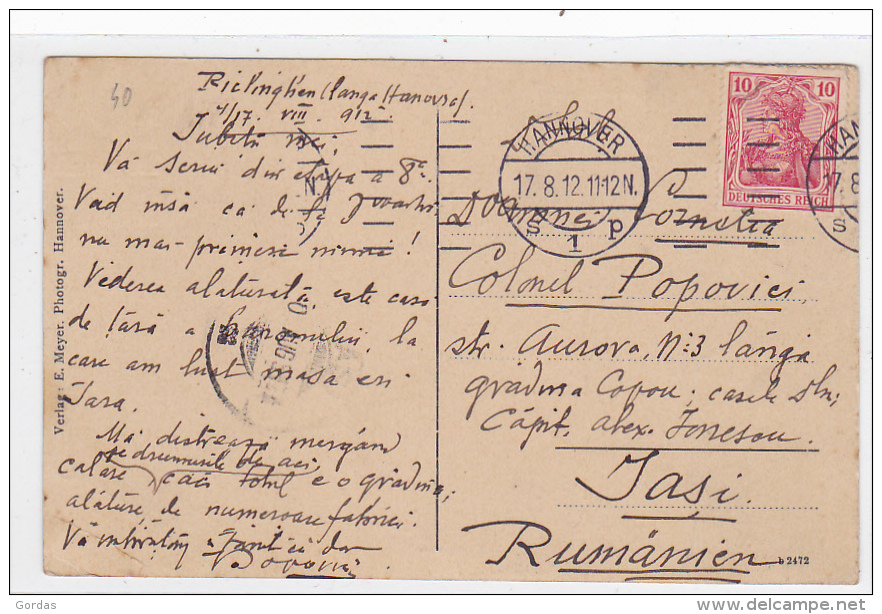 40
Ricklinghen (langa Hanovra)
4/17. VIII. 912.
Iubiți mei,
Vă scriu din etapa a 8a.
Văd însă că de la Dvoastră
nu mai primesc nimic!
Vederea alăturată, este casa
de țară a baronului, la
care am luat masa eri
seara.
Mă distrează mergând
calare pe drumurile de aci,
căci totul e o grădină,
alături de numeroase fabrici.
Vă îmbrățișez
Popovici
Verlag: E. Meyer. Photogr. Hannover.
HANNOVER
17.8.12.11-12N.
S 1 p
10 10
DEUTSCHES REICH
HAN
17.8
S
Doamnei
Colonel Popovici,
str. Aurora, No 3 lângă
grădina Copou; casele dlui
Căpit. Alex. Ionescu.
Iași.
Rumänien
b 2472
© Gordas
http://www.delcampe.net